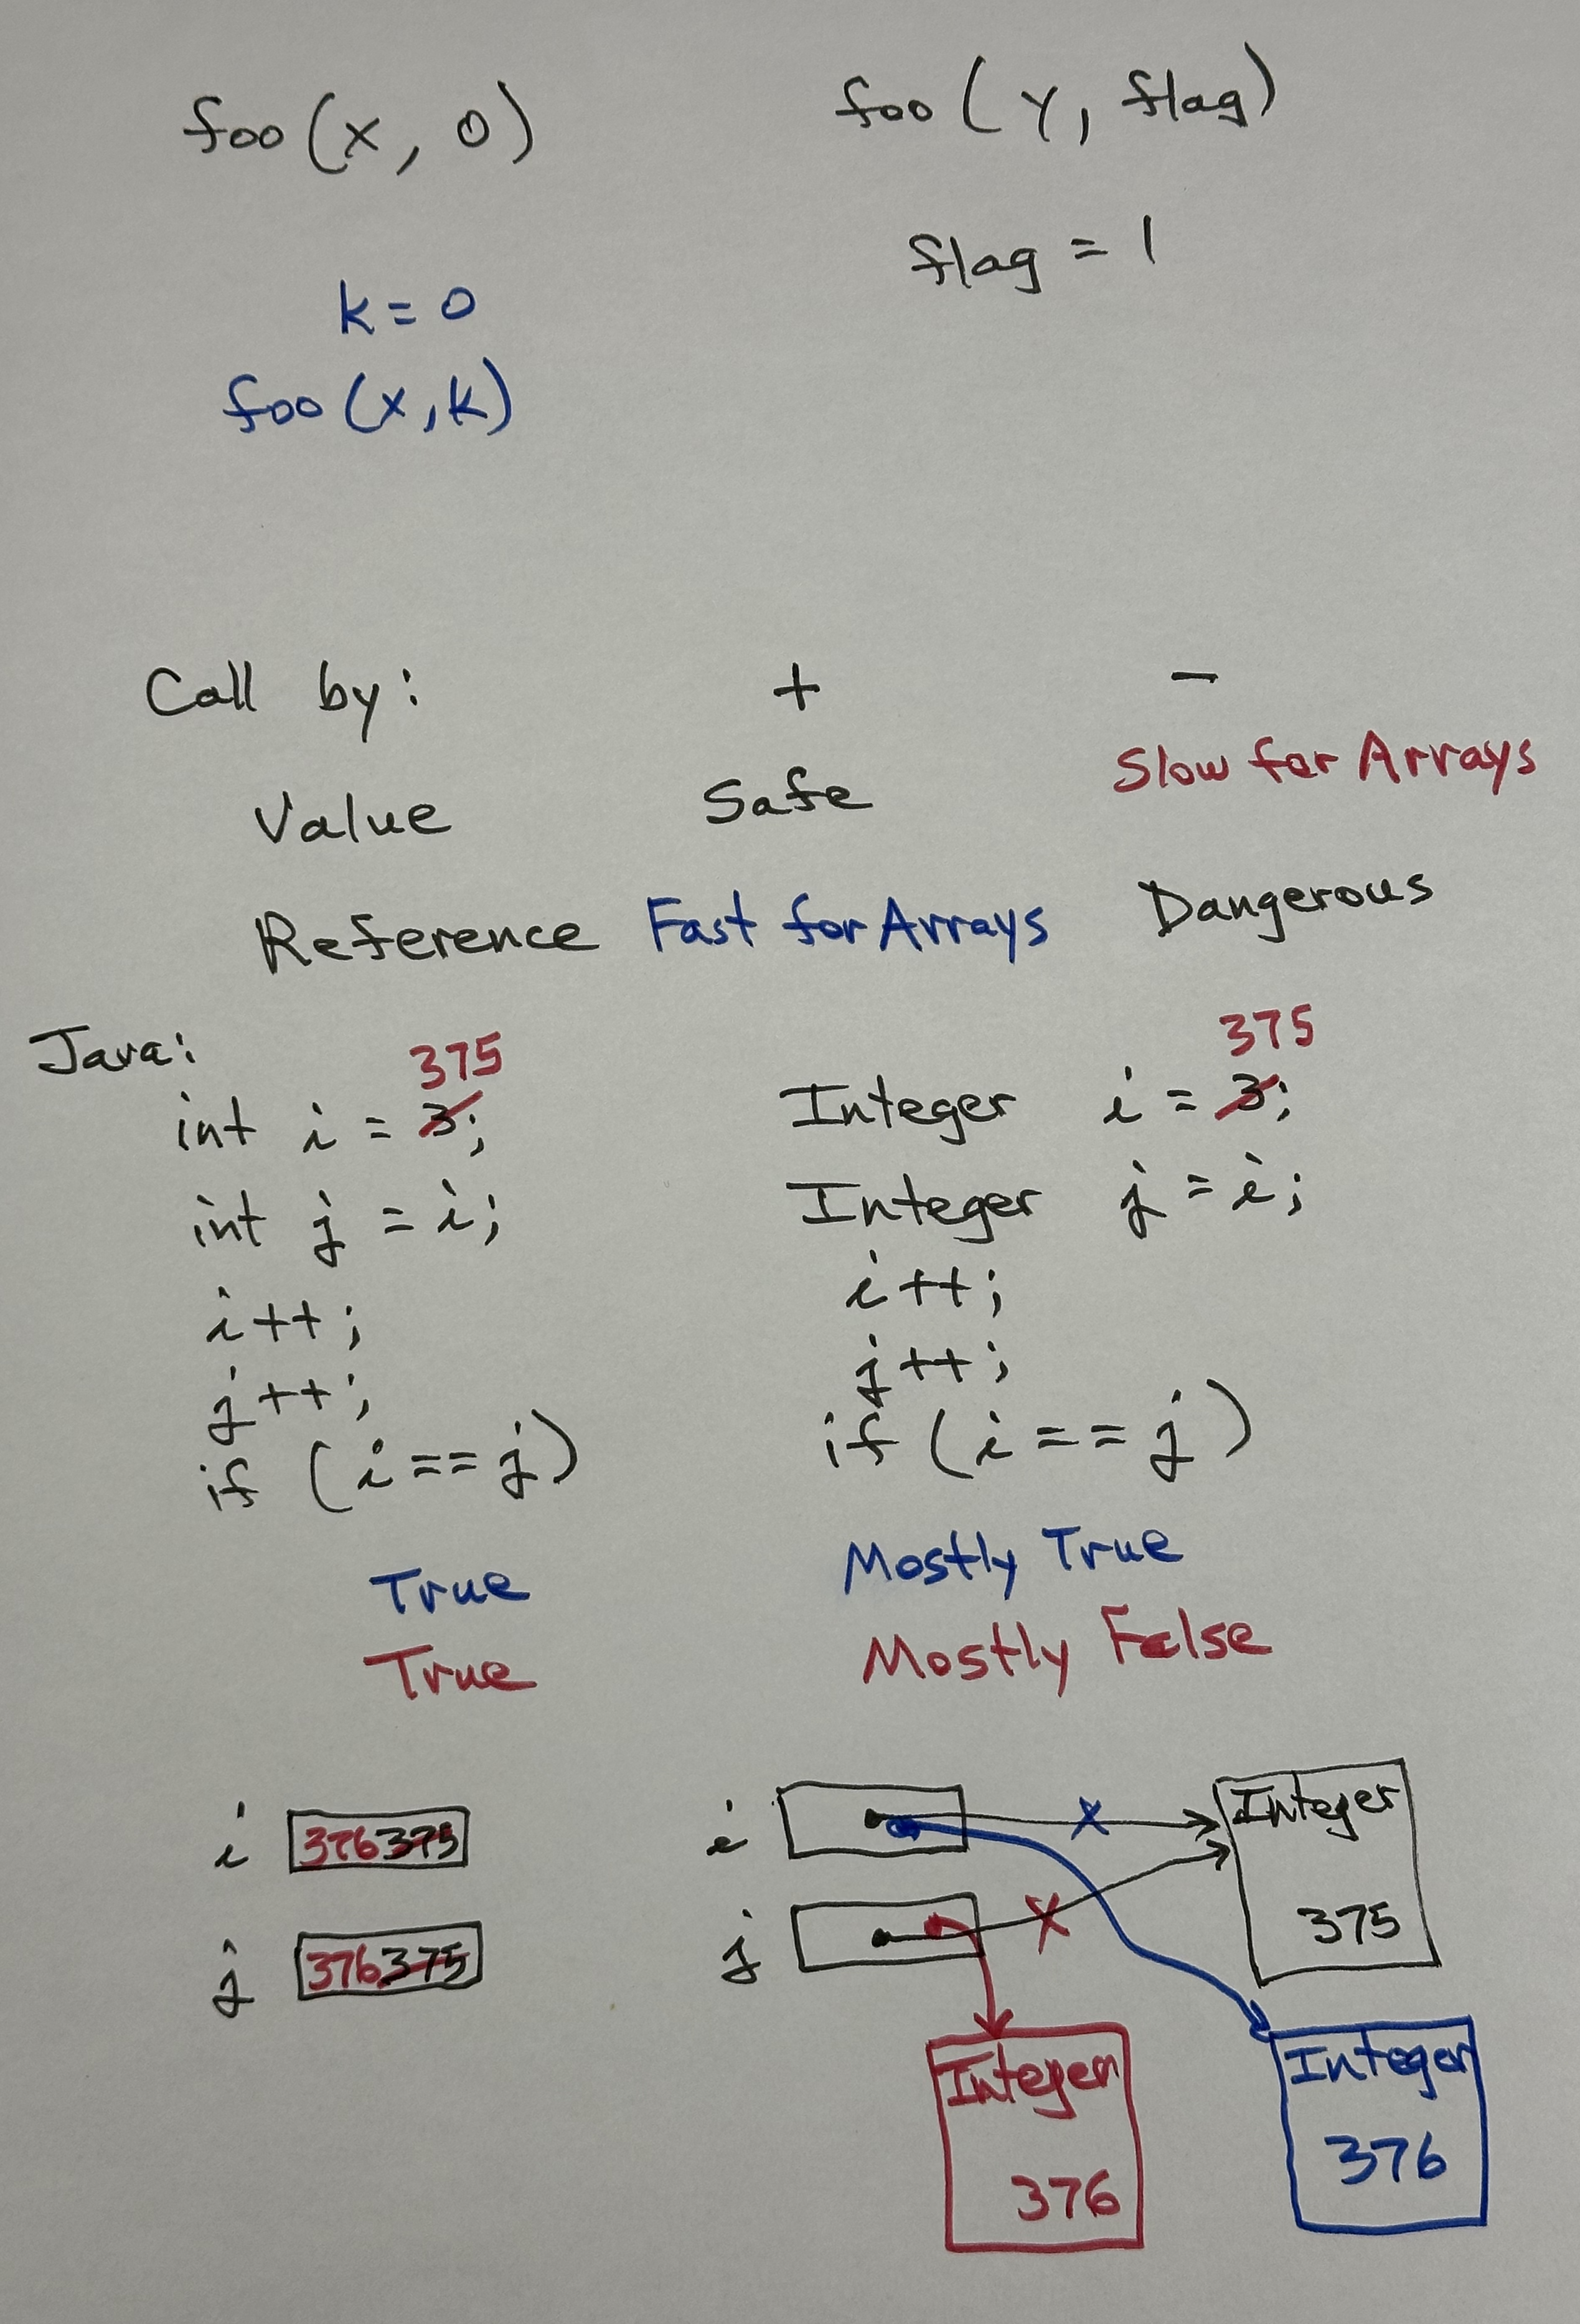 foo(x, 0)
foo(Y, flag)
flag = 1
k = 0
foo(x,k)
Call by: + -
Value Safe Slow for Arrays
Reference Fast for Arrays Dangerous
Java:
375
int i = 3;
int j = i;
i++;
j++;
if (i == j)
True
True
375
Integer i = 3;
Integer j = i;
i++;
j++;
if (i == j)
Mostly True
Mostly False
i 376 375
j 376 375
i
j
Integer
375
Integer
376
Integer
376